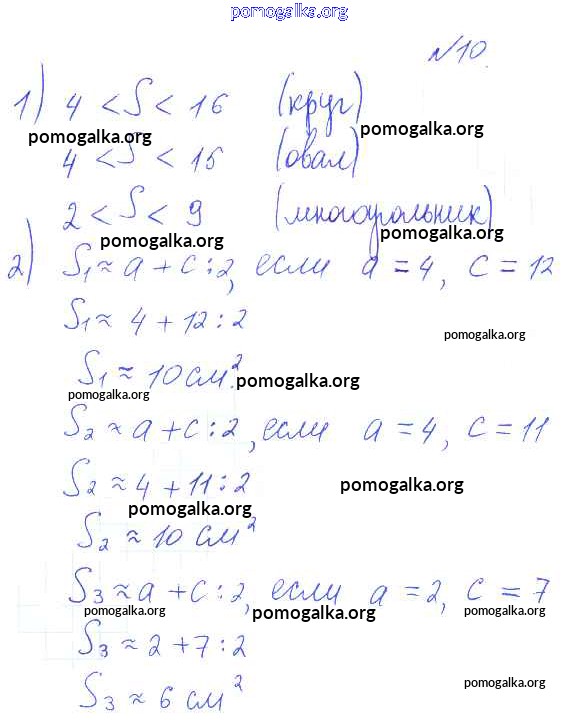 pomogalka.org
№10.
1) 4 < S < 16 (круг)
pomogalka.org pomogalka.org
4 < S < 15 (овал)
2 < S < 9 (многоугольник)
pomogalka.org pomogalka.org
2) S₁ ≈ a + c : 2, если a = 4, c = 12
S₁ ≈ 4 + 12 : 2
pomogalka.org
S₁ ≈ 10 см². pomogalka.org
pomogalka.org
S₂ ≈ a + c : 2, если a = 4, c = 11
S₂ ≈ 4 + 11 : 2 pomogalka.org
pomogalka.org
S₂ ≈ 10 см²
S₃ ≈ a + c : 2, если a = 2, c = 7
pomogalka.org pomogalka.org pomogalka.org
S₃ ≈ 2 + 7 : 2
S₃ ≈ 6 см² pomogalka.org